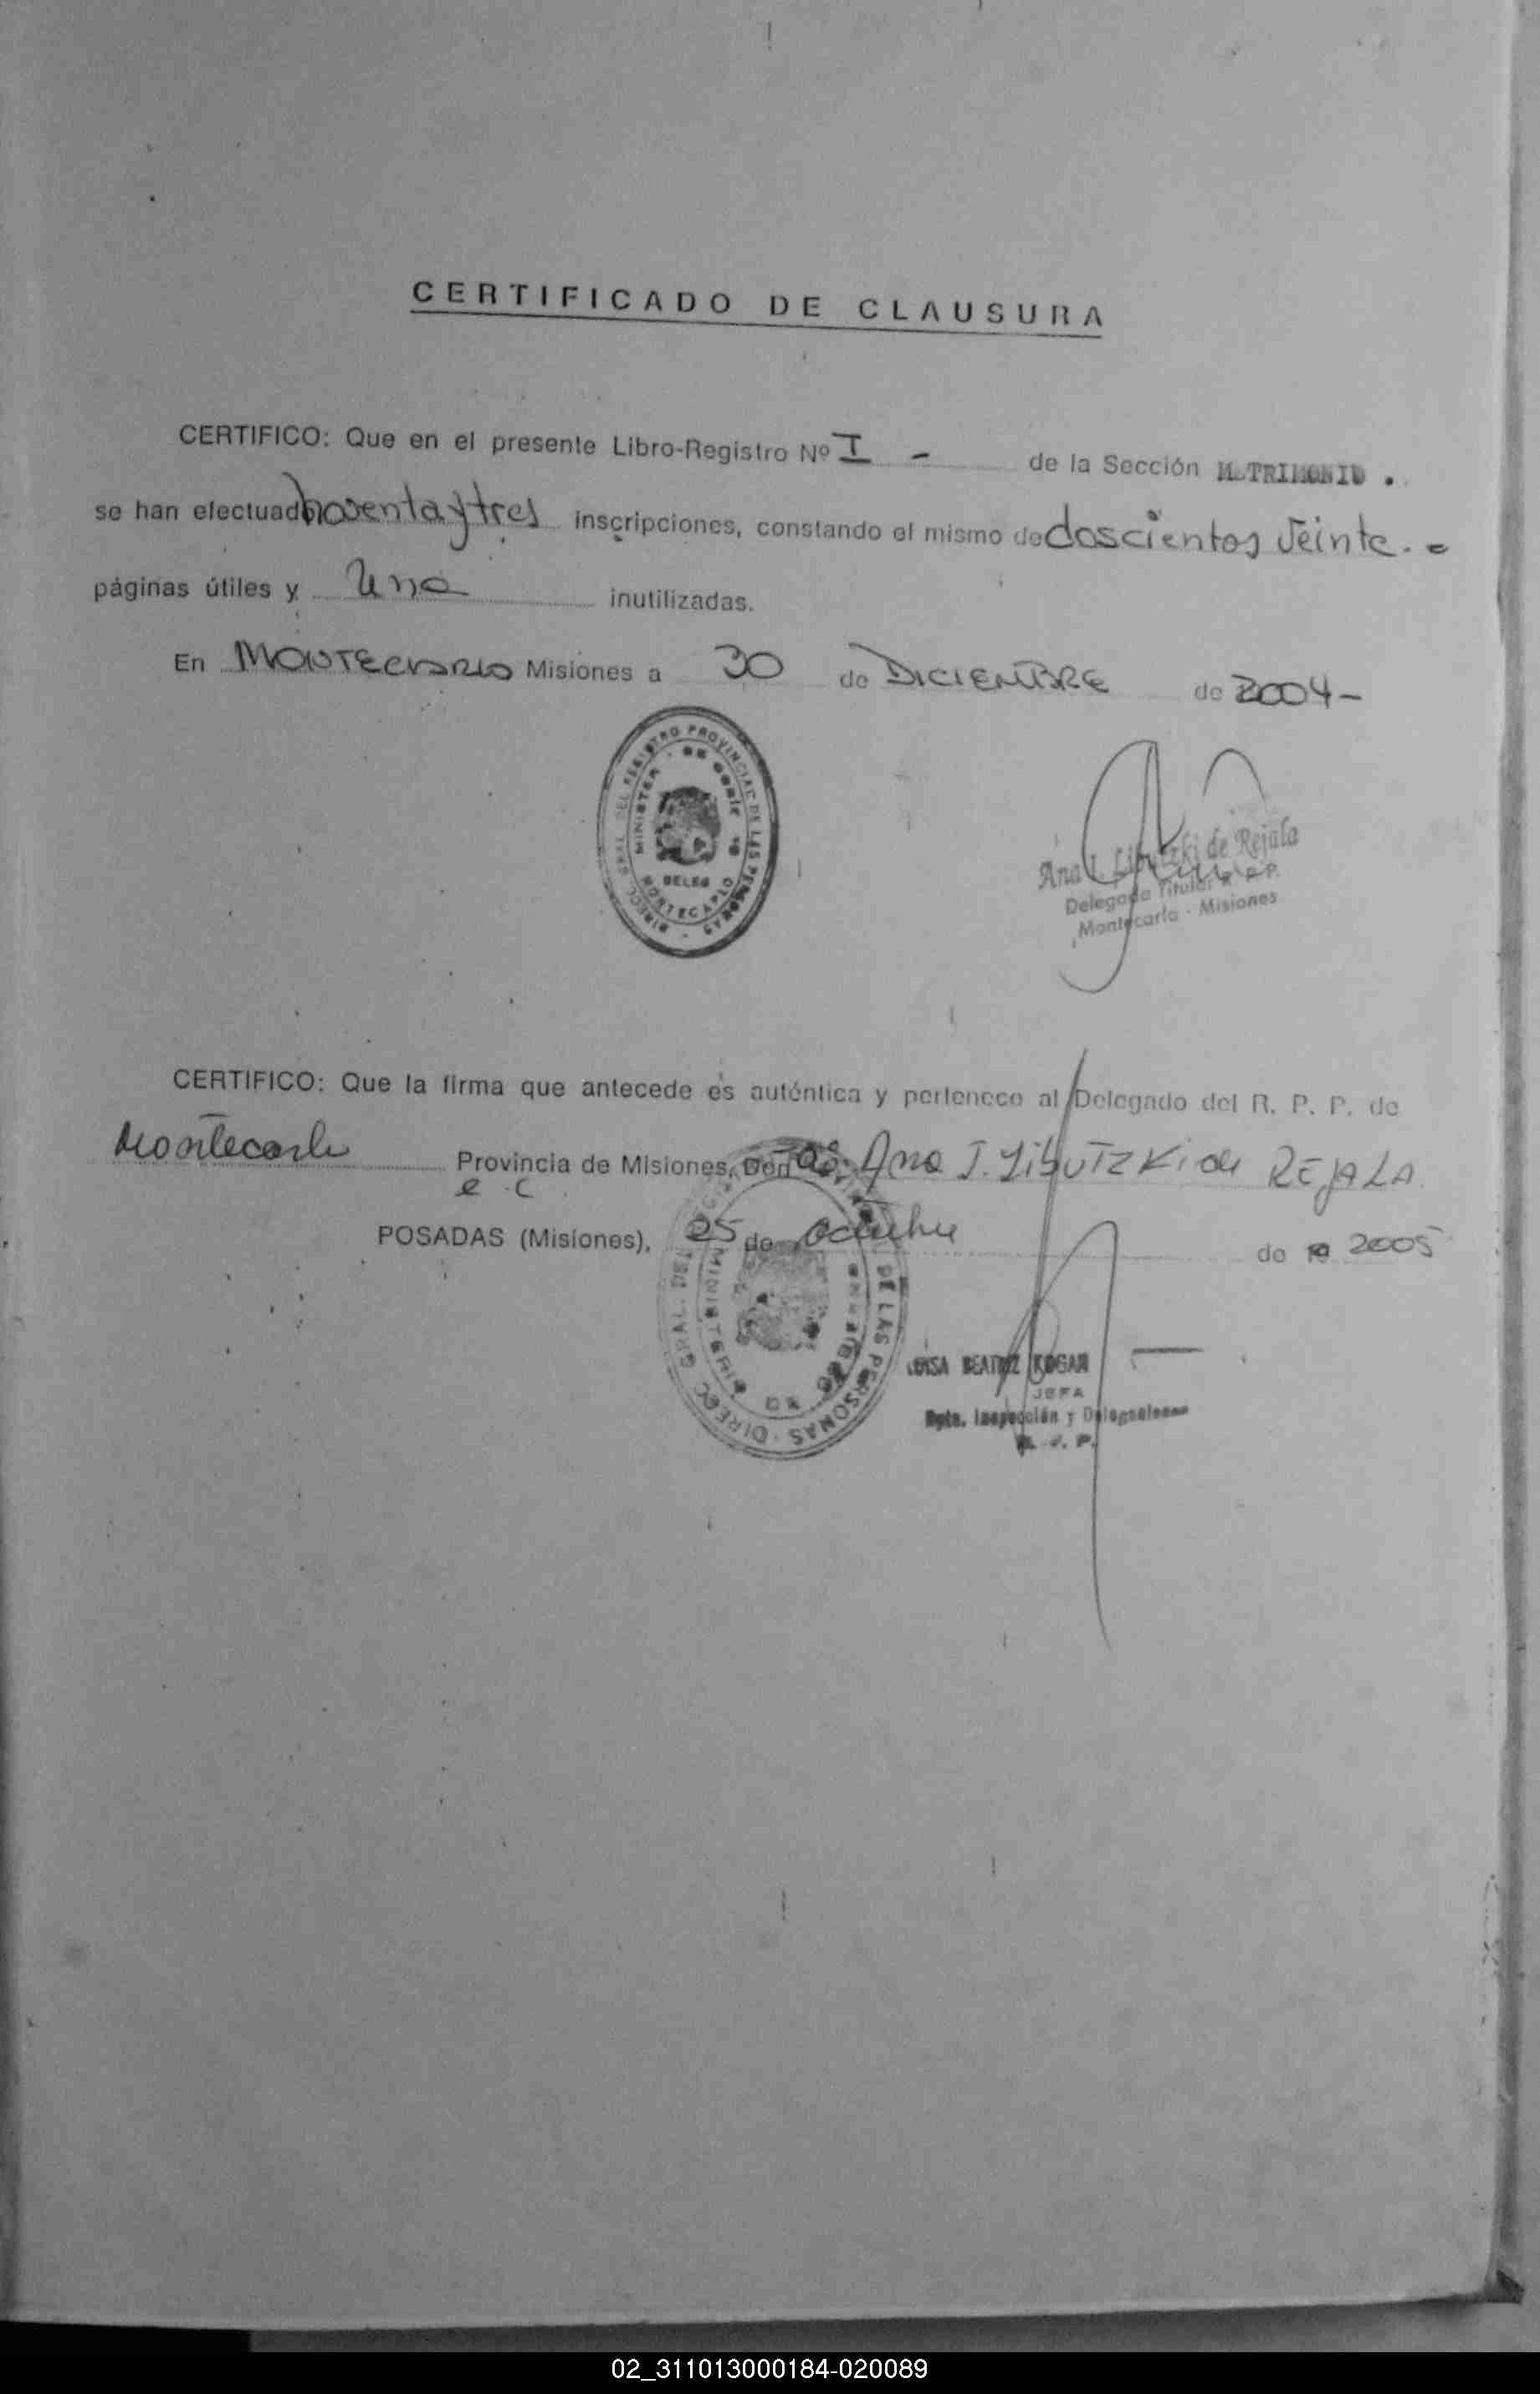 CERTIFICADO DE CLAUSURA
CERTIFICO: Que en el presente Libro-Registro Nº I - de la Sección M TRIMONIO .
se han efectuado noventa y tres inscripciones, constando el mismo de doscientos veinte. =
páginas útiles y una inutilizadas.
En MONTECARLO Misiones a 30 de DICIEMBRE de 2004 -
DIRECC. GRAL. DEL REGISTRO PROVINCIAL DE LAS PERSONAS
MINISTER DE
DELEG
MONTECARLO
Ana I. Libutzki de Rejala
Delegada Titular R. P. P.
Montecarlo - Misiones
CERTIFICO: Que la firma que antecede es auténtica y pertenece al Delegado del R. P. P. de
Montecarlo Provincia de Misiones, Don Ana I. Libutzki de REJALA
e. c
POSADAS (Misiones), 25 de octubre de 19 2005
DIRECC. GRAL. DEL DE LAS PERSONAS
MINISTERIO DE
LUISA BEATRIZ KOGAN
JEFA
Dpto. Inspección y Delegaciones
02_311013000184-020089